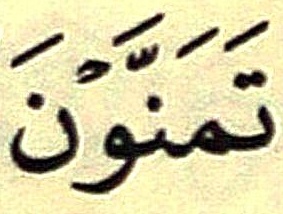 تَمَنَّوْنَ